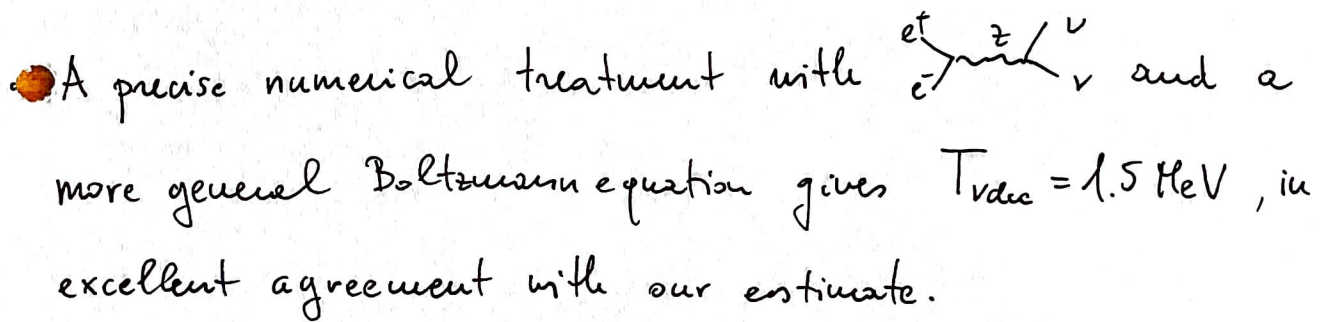 A precise numerical treatment with e⁺ e⁻ z ν ν and a
more general Boltzmann equation gives T_νdec = 1.5 MeV, in
excellent agreement with our estimate.